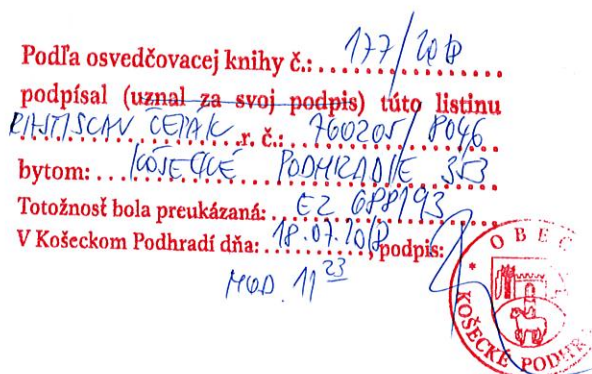 Podľa osvedčovacej knihy č.: 177/2018
podpísal (uznal za svoj podpis) túto listinu
RASTISLAV ČEPÁK r. č.: 760205/8046
bytom: KOŠECKÉ PODHRADIE 353
Totožnosť bola preukázaná: EZ 688193
V Košeckom Podhradí dňa: 18.07.2018, podpis:
HOD. 11 23
OBEC
KOŠECKÉ PODHR